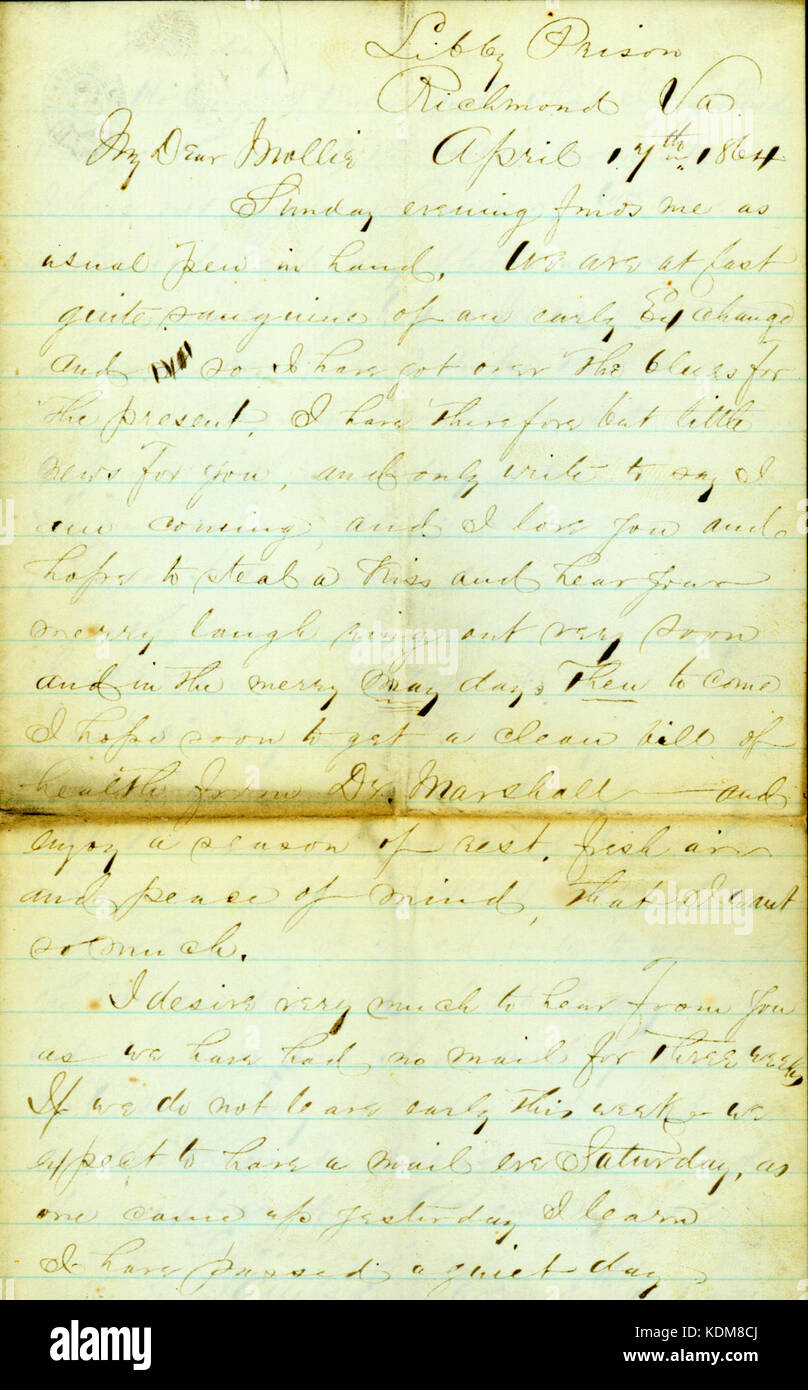 Libby Prison
Richmond Va
My Dear Mollie April 17th 1864
Sunday evening finds me as
usual pen in hand. We are at last
quite sanguine of an early Exchange
and so I have got over the blues for
the present. I have therefore but little
news for you, and only write to say I
am coming, and I love you and
hope to steal a kiss and hear your
merry laugh ring out very soon
and in the merry May days Then to come
I hope soon to get a clean bill of
health from Dr. Marshall — and
enjoy a season of rest, fresh air
and peace of mind, that I want
so much.
I desire very much to hear from you
as we have had no mail for three weeks
If we do not leave early this week we
expect to have a mail ere Saturday, as
one came up yesterday I learn
I have passed a quiet day
alamy
alamy stock photo
KDM8CJ
www.alamy.com